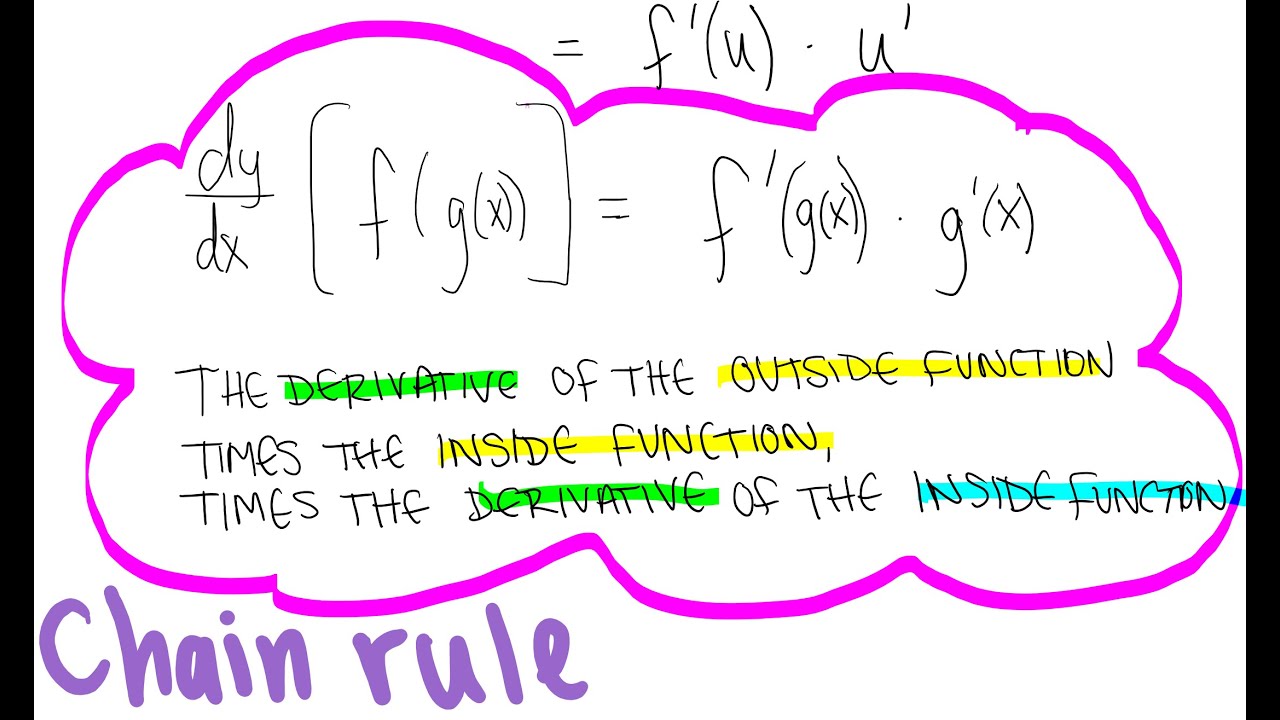 = f'(u) · u'
dy/dx [f(g(x))] = f'(g(x)) · g'(x)
THE DERIVATIVE OF THE OUTSIDE FUNCTION
TIMES THE INSIDE FUNCTION,
TIMES THE DERIVATIVE OF THE INSIDE FUNCTION
Chain rule